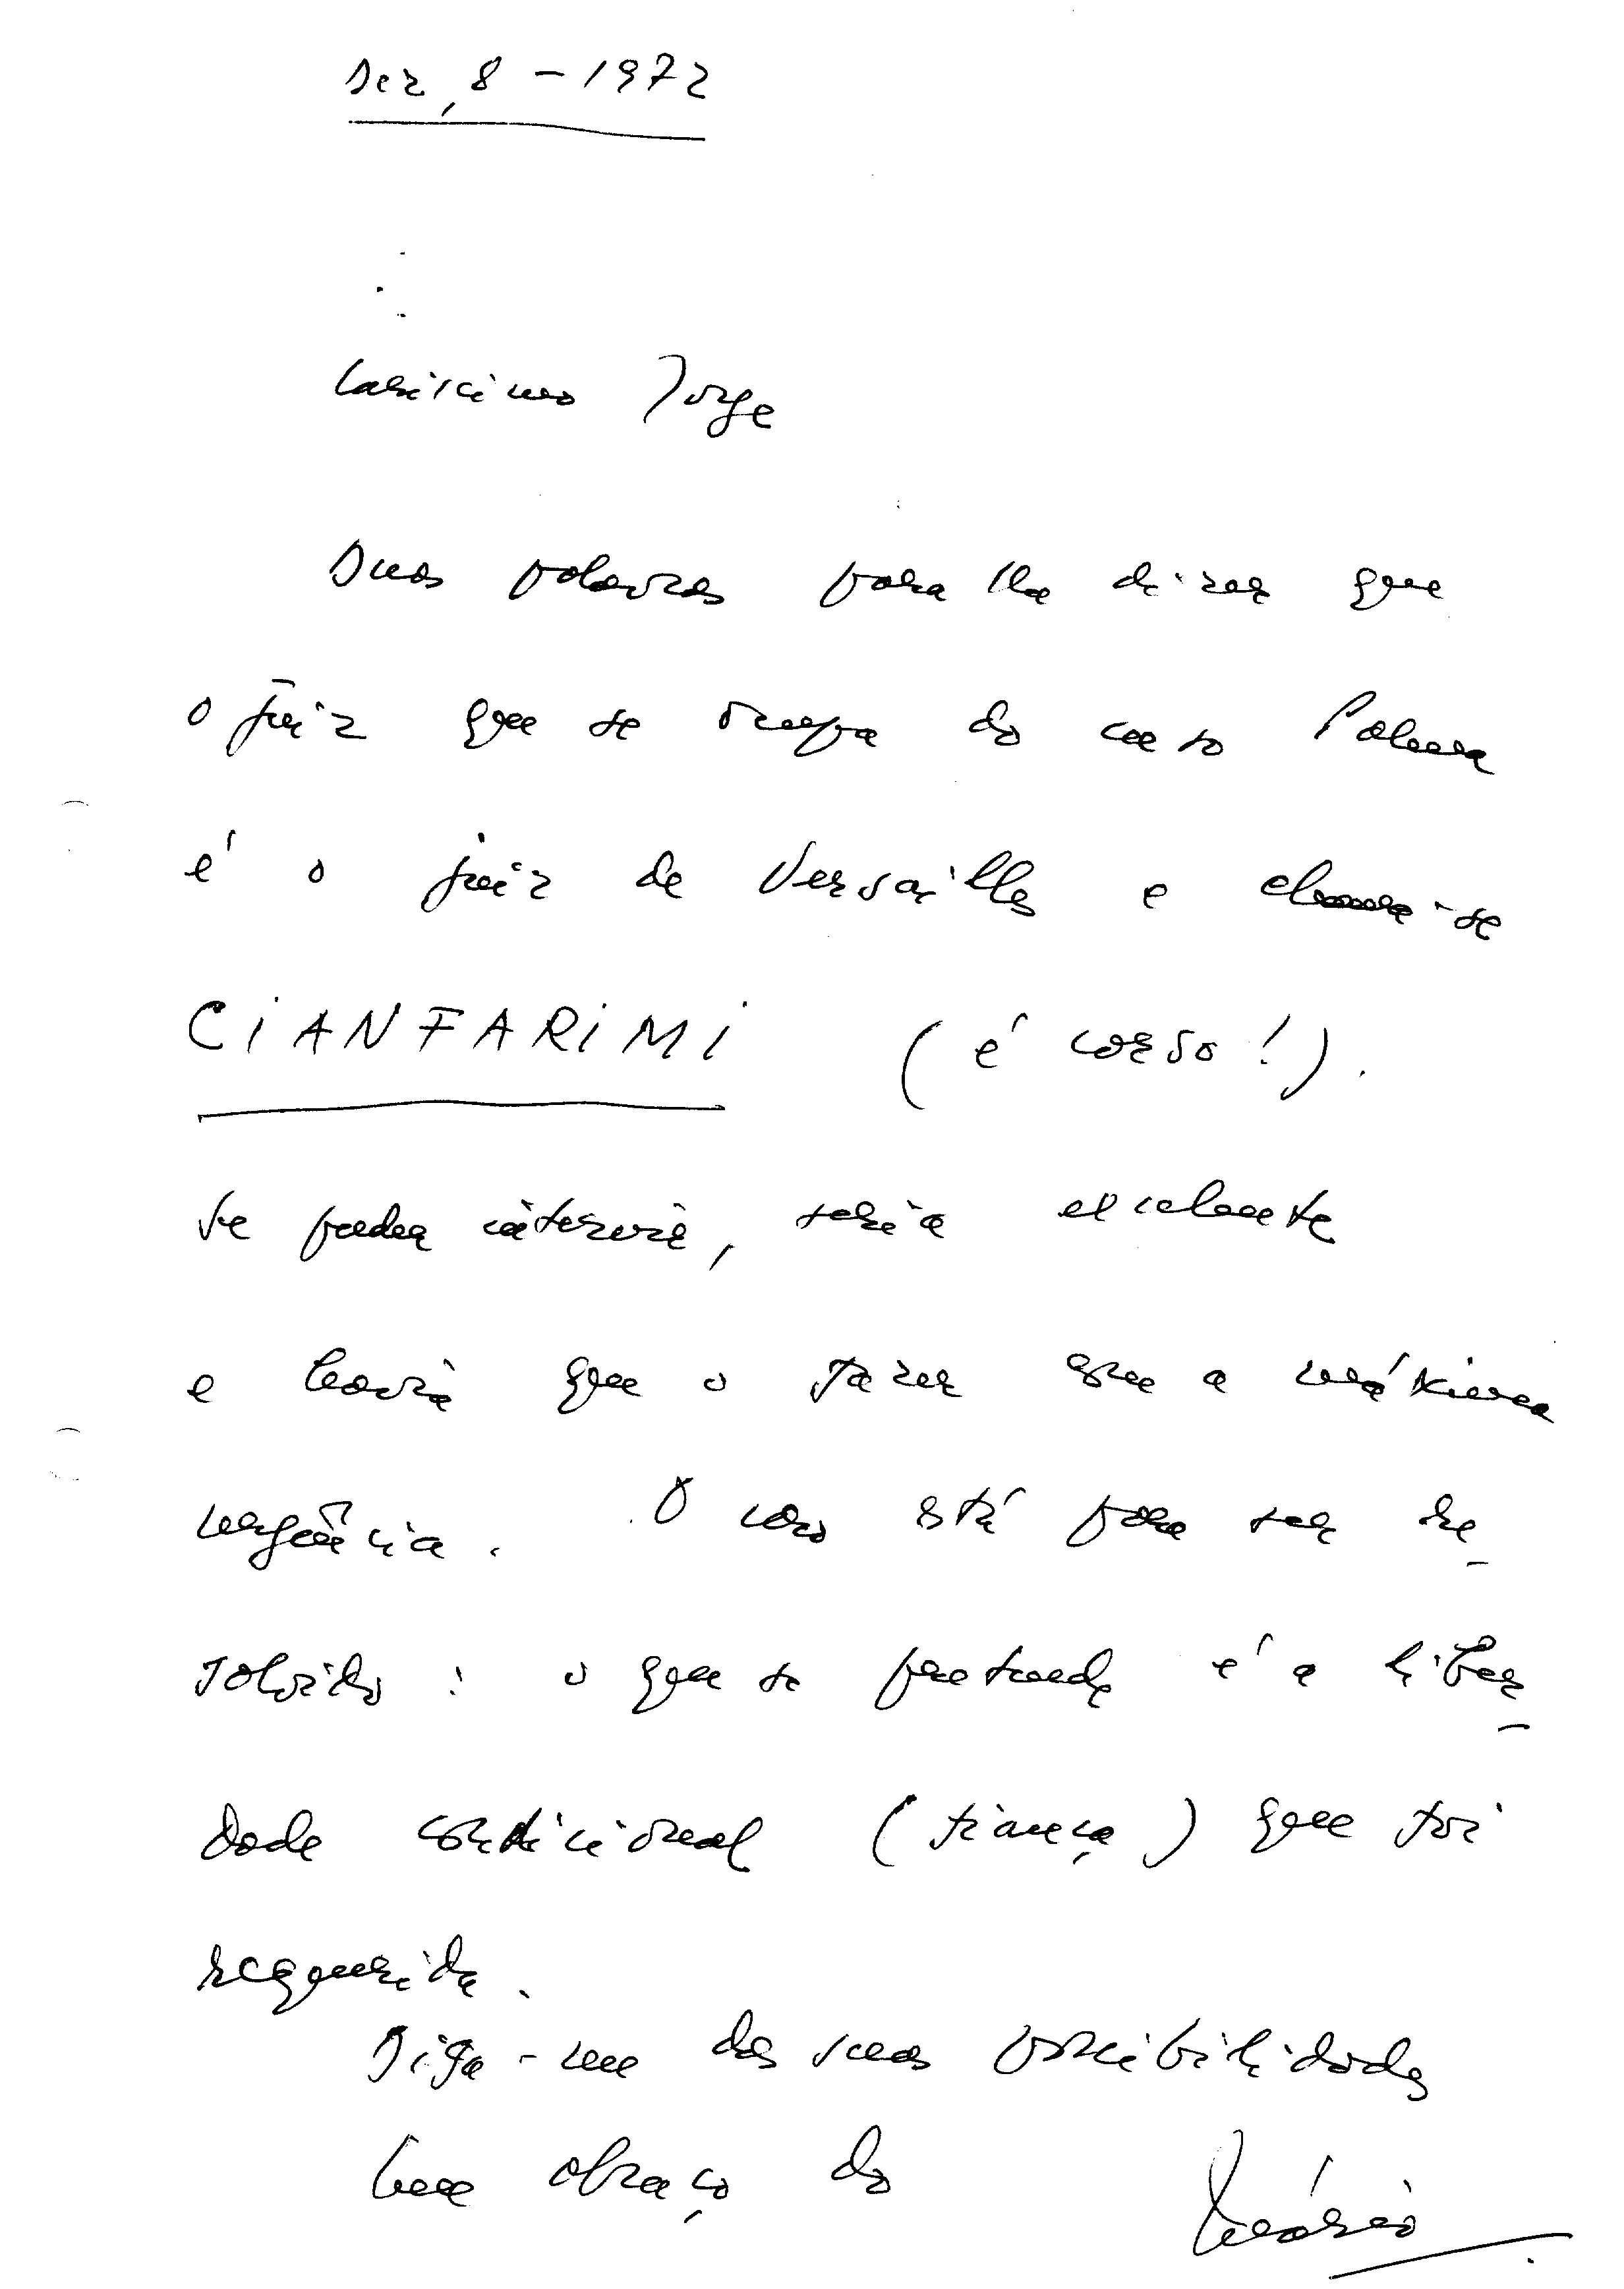 Dez, 8 - 1972
Caríssimo Jorge
Duas palavras para lhe dizer que
o juiz que se ocupa do caso Palma
é o juiz de Versailles e chama-se
CIANFARIMI (é corso!).
Se puder intervir, seria excelente
e haveria que o fazer com a máxima
urgência. O caso está para ser re-
solvido: o que se pretende é a liber-
dade condicional (fiança) que foi
requerida.
Diga-me das suas possibilidades
Um abraço do Mário